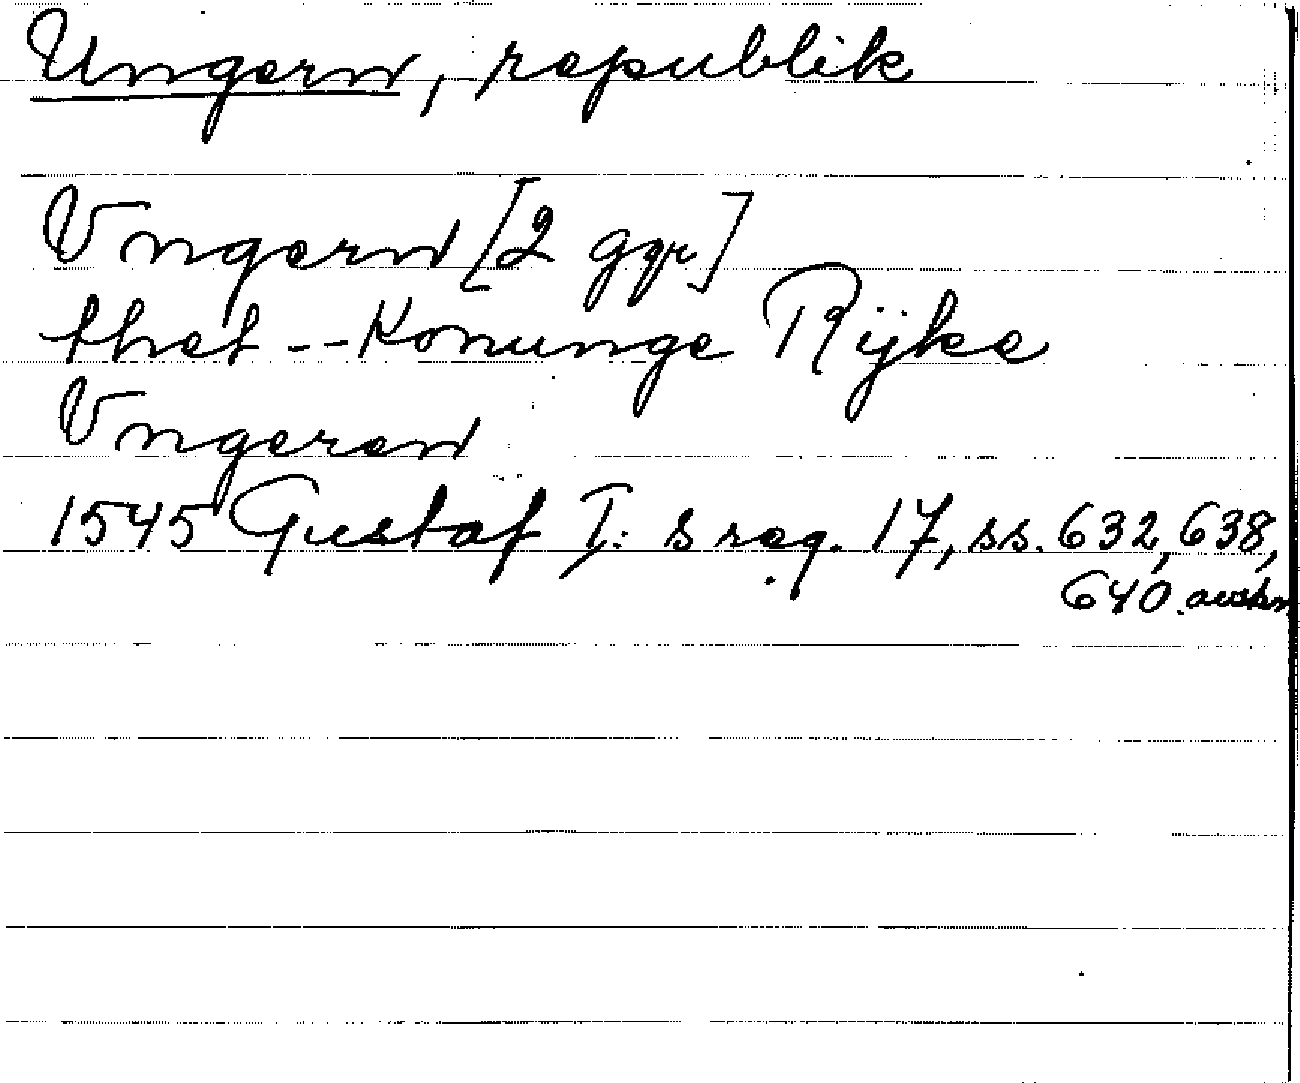 Ungern, republik
Vngern [2 ggr]
thet -- Konunge Rijke
Vngeren
1545 Gustaf I:s reg. 17, ss. 632, 638,
640. avskr